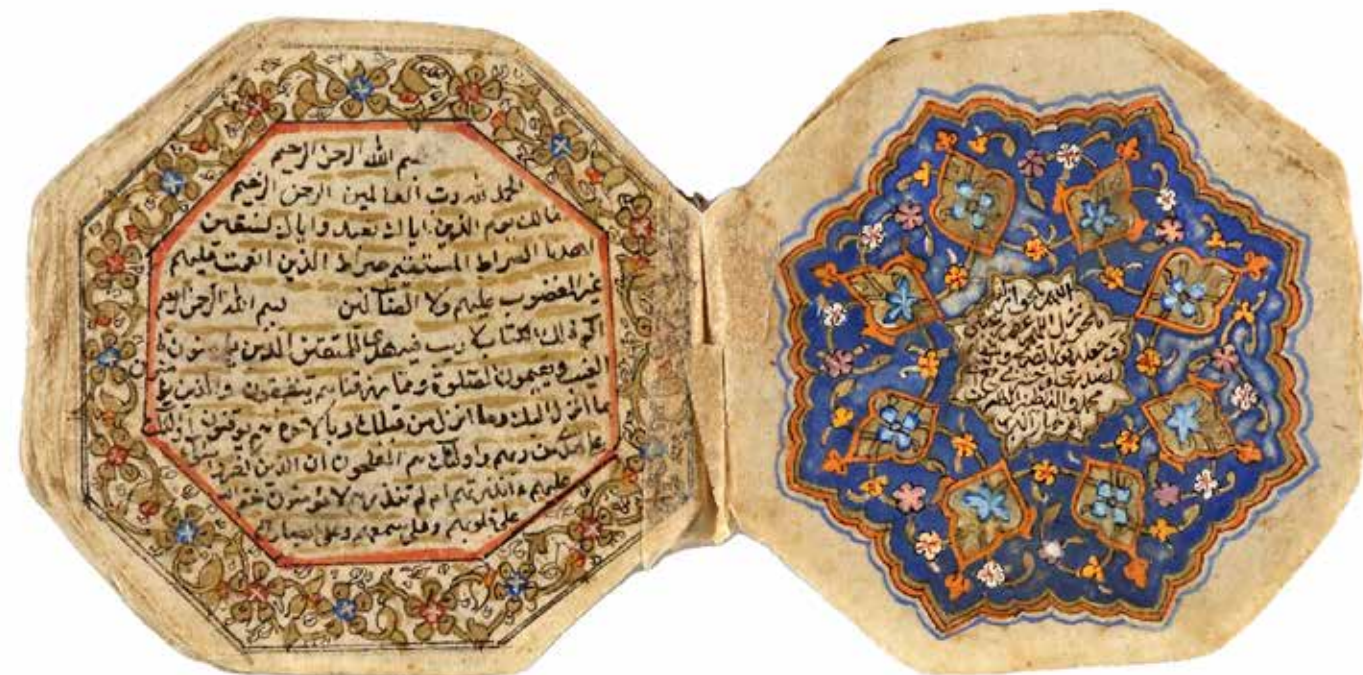 اللهم بالحق انزلته
وبالحق نزل اللهم عظم رغبتي
واجعله نورا لبصري وشفاء
لصدري
محمد
الابرار
بسم الله الرحمن الرحيم
الحمد لله رب العالمين الرحمن الرحيم
مالك يوم الدين اياك نعبد واياك نستعين
اهدنا الصراط المستقيم صراط الذين انعمت عليهم
غير المغضوب عليهم ولا الضالين بسم الله الرحمن الرحيم
الم ذلك الكتاب لا ريب فيه هدى للمتقين الذين يؤمنون با
الغيب ويقيمون الصلوة ومما رزقناهم ينفقون والذين يؤمنون
بما انزل اليك وما انزل من قبلك وبالاخرة هم يوقنون اولئك
على هدى من ربهم واولئك هم المفلحون ان الذين كفروا سواء
عليهم ءانذرتهم ام لم تنذرهم لا يؤمنون ختم الله
على قلوبهم وعلى سمعهم وعلى ابصارهم